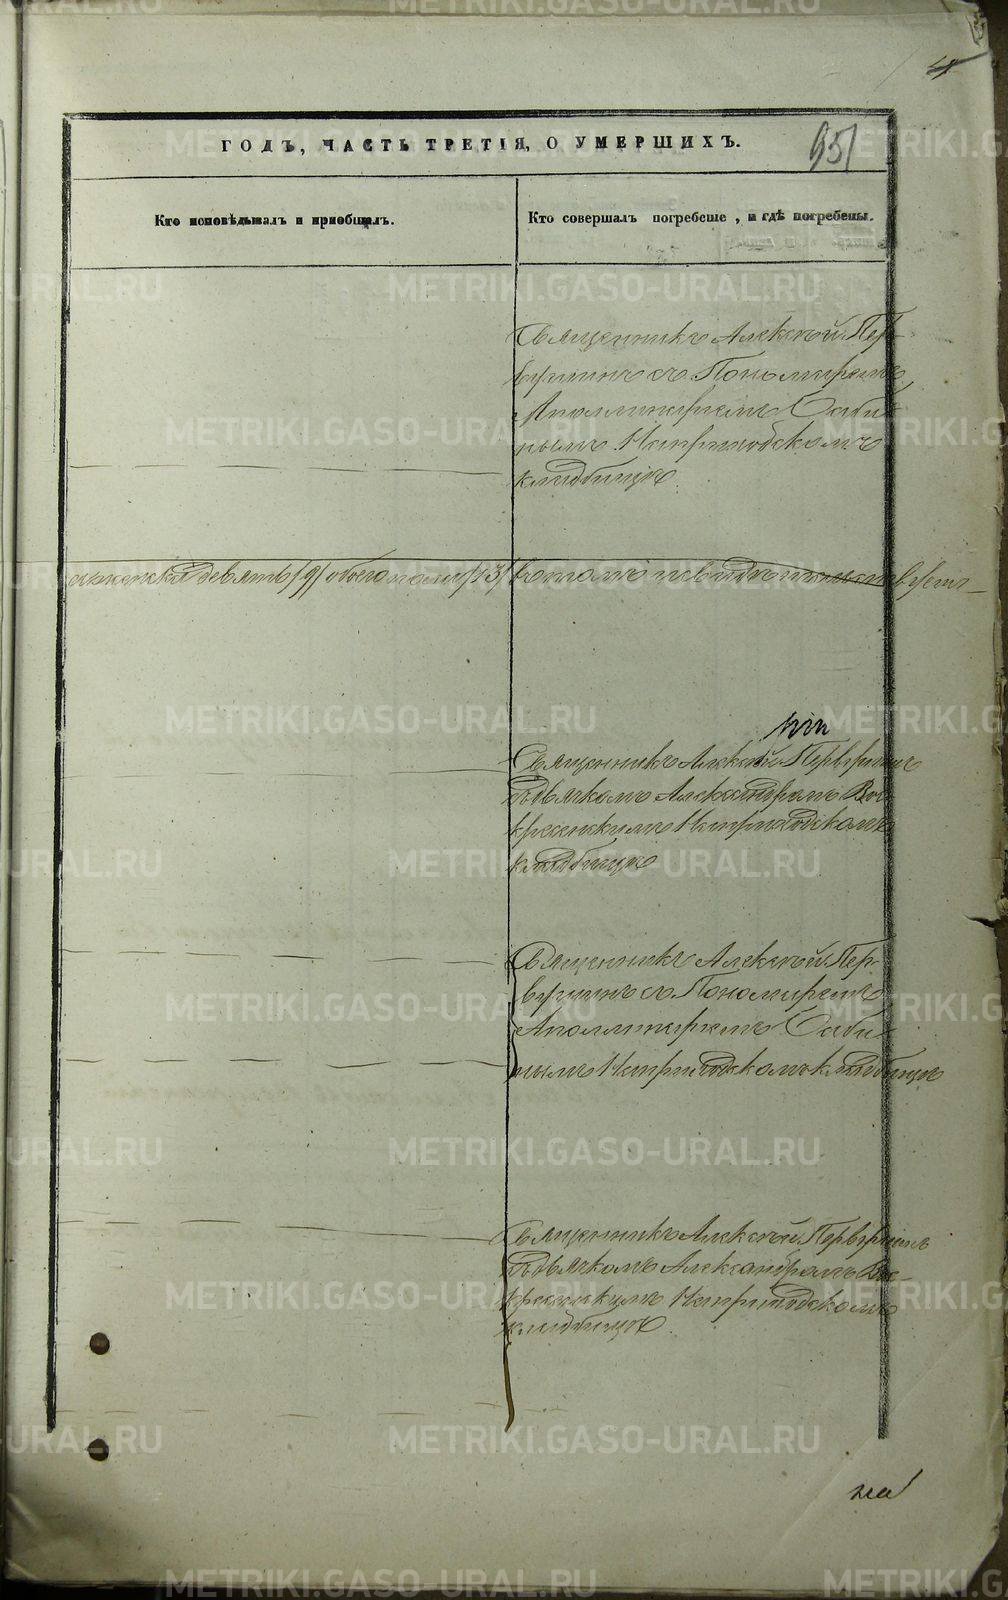 ГОДЪ, ЧАСТЬ ТРЕТІЯ, О УМЕРШИХЪ.
95
Кто исповѣдывалъ и приобщалъ.
Кто совершалъ погребеніе, и гдѣ погребены.
Священникъ Алексѣй Пер-
вушинъ съ Пономаремъ
Аполлинаріемъ Саби-
нымъ На приходскомъ
кладбищѣ.
женска девять /9/ обоего пола /13/
Священникъ Алексѣй Первушинъ
съ дьячкомъ Александромъ Вос-
кресенскимъ На приходскомъ
кладбищѣ
Священникъ Алексѣй Пер-
вушинъ съ Пономаремъ
Аполлинаріемъ Саби-
нымъ На приходскомъ кладбищѣ
Священникъ Алексѣй Первушинъ
съ дьячкомъ Александромъ Вос-
кресенскимъ На приходскомъ
кладбищѣ.
METRIKI.GASO-URAL.RU